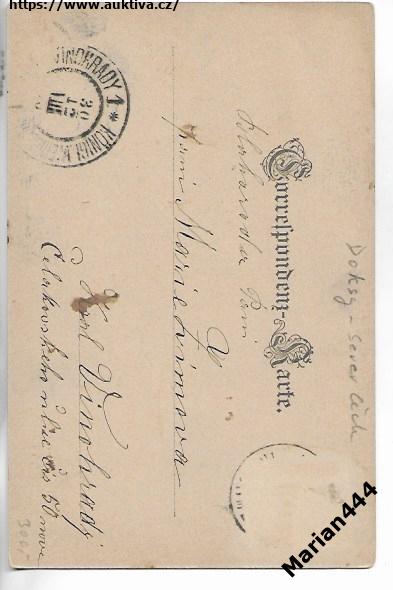 https://www.auktiva.cz/
Correspondenz-Karte.
Blahorodá Paní
paní Marie
V
Král Vinohrady
Čelakovského ulice čís 50 nové
VINOHRADY 1 * KÖNIGL.
30
VIII
Doksy - sever Čech
300,-
Marian444